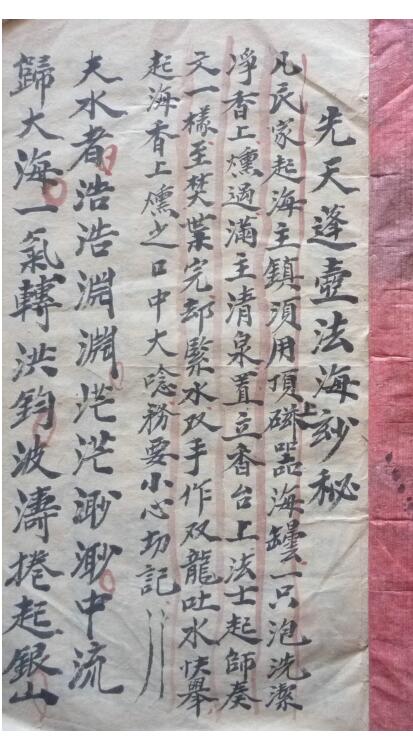 先天蓬壺法海玅秘
凡民家起海主鎮須用頂上磁器海罎一只泡洗潔
净香上燻過滿主清泉置立香台上法士起師奏
文一樣至焚葉完却緊水双手作双龍吐水懽舉
起海香上燻之口中大唸務要小心切記
夫水者浩浩淵淵茫茫渺渺中流
歸大海一氣轉洪鈞波濤捲起銀山